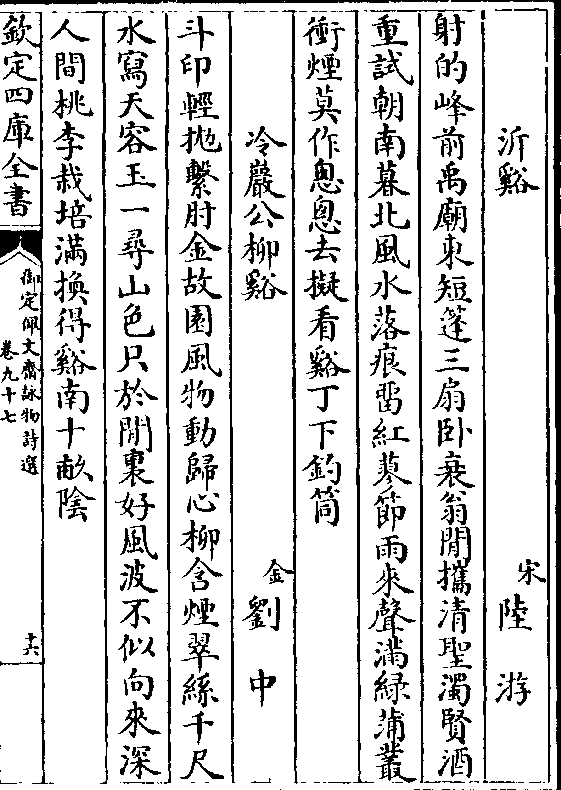 沂谿
宋陸游
射的峰前禹廟東短篷三扇卧衰翁閒攜清聖濁賢酒
重試朝南暮北風水落痕畱紅蓼節雨來聲滿綠蒲叢
衝煙莫作怱怱去擬看谿丁下釣筒
冷巖公柳谿
金劉中
斗印輕抛繫肘金故園風物動歸心柳含煙翠絲千尺
水寫天容玉一尋山色只於閒裏好風波不似向來深
人間桃李栽培滿換得谿南十畝陰
欽定四庫全書
御定佩文齋詠物詩選
卷九十七
十六